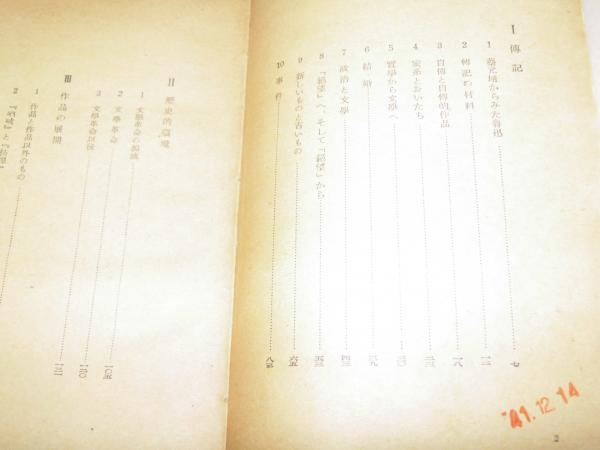 I 傳記……七
1 蔡元培からみた魯迅……一二
2 傳記の材料……一八
3 自傳と自傳的作品……二三
4 家系とおいたち……三〇
5 實學から文學へ……三〇
6 結婚……三九
7 政治と文學……四三
8 『絕望』へ、そして『絕望』から……五三
9 新しいものと古いもの……六五
10 事件……八五
2
'41.12.14
II 歷史的環境
1 文學革命の源流……一〇五
2 文學革命
3 文學革命以後……一二〇
III 作品の展開……一三一
1 作品と作品以外のもの
2 『吶喊』と『彷徨』